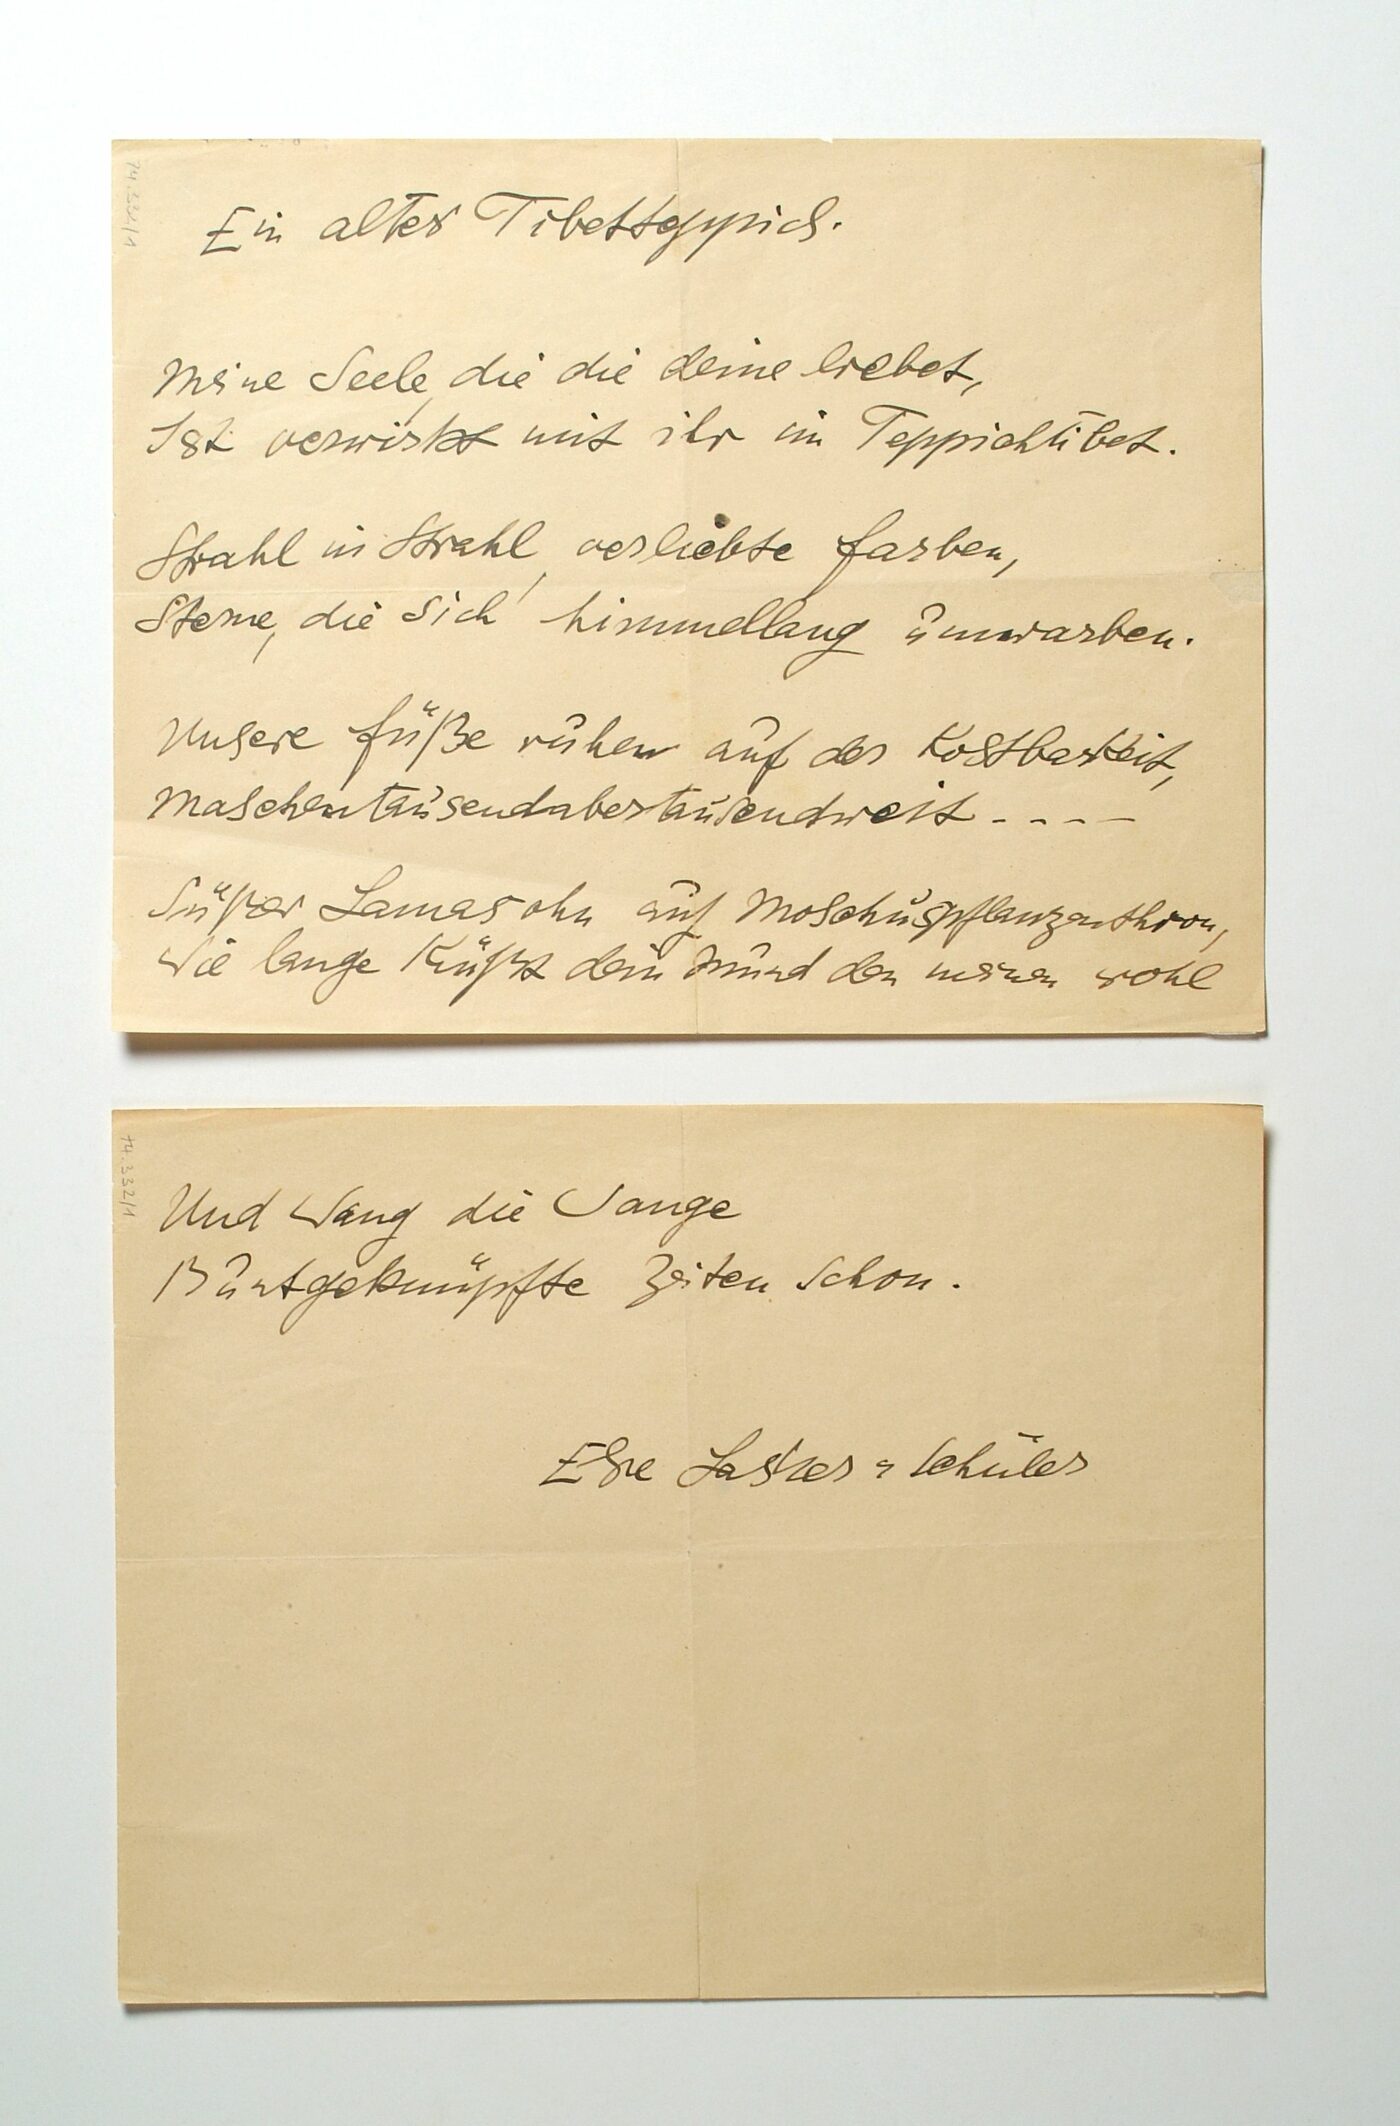 74.332/1
Ein alter Tibetteppich.
Meine Seele, die die deine liebet,
Ist verwirkt mit ihr im Teppichtibet.
Strahl in Strahl, verliebte Farben,
Sterne, die sich himmellang umwarben.
Unsere Füße ruhen auf der Kostbarkeit,
Maschentausendabertausendweit - - - -
Süßer Lamasohn auf Moschuspflanzenthron,
Wie lange küßt dein Mund den meinen wohl
74.332/1
Und Wang die Wange
Buntgeknüpfte Zeiten schon.
Else Lasker=Schüler